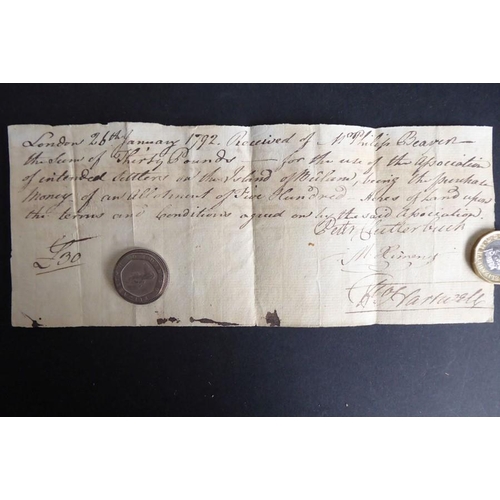 London 26th January 1792. Received of Mr Philip Beaver
the Sum of Thirty Pounds — for the use of the Association
of intended Settlers on the Island of Bulam, being the purchase
Money of an allotment of Five Hundred Acres of Land upon
the terms and Conditions agreed on by the said Association.
Petr Clutterbuck
£30